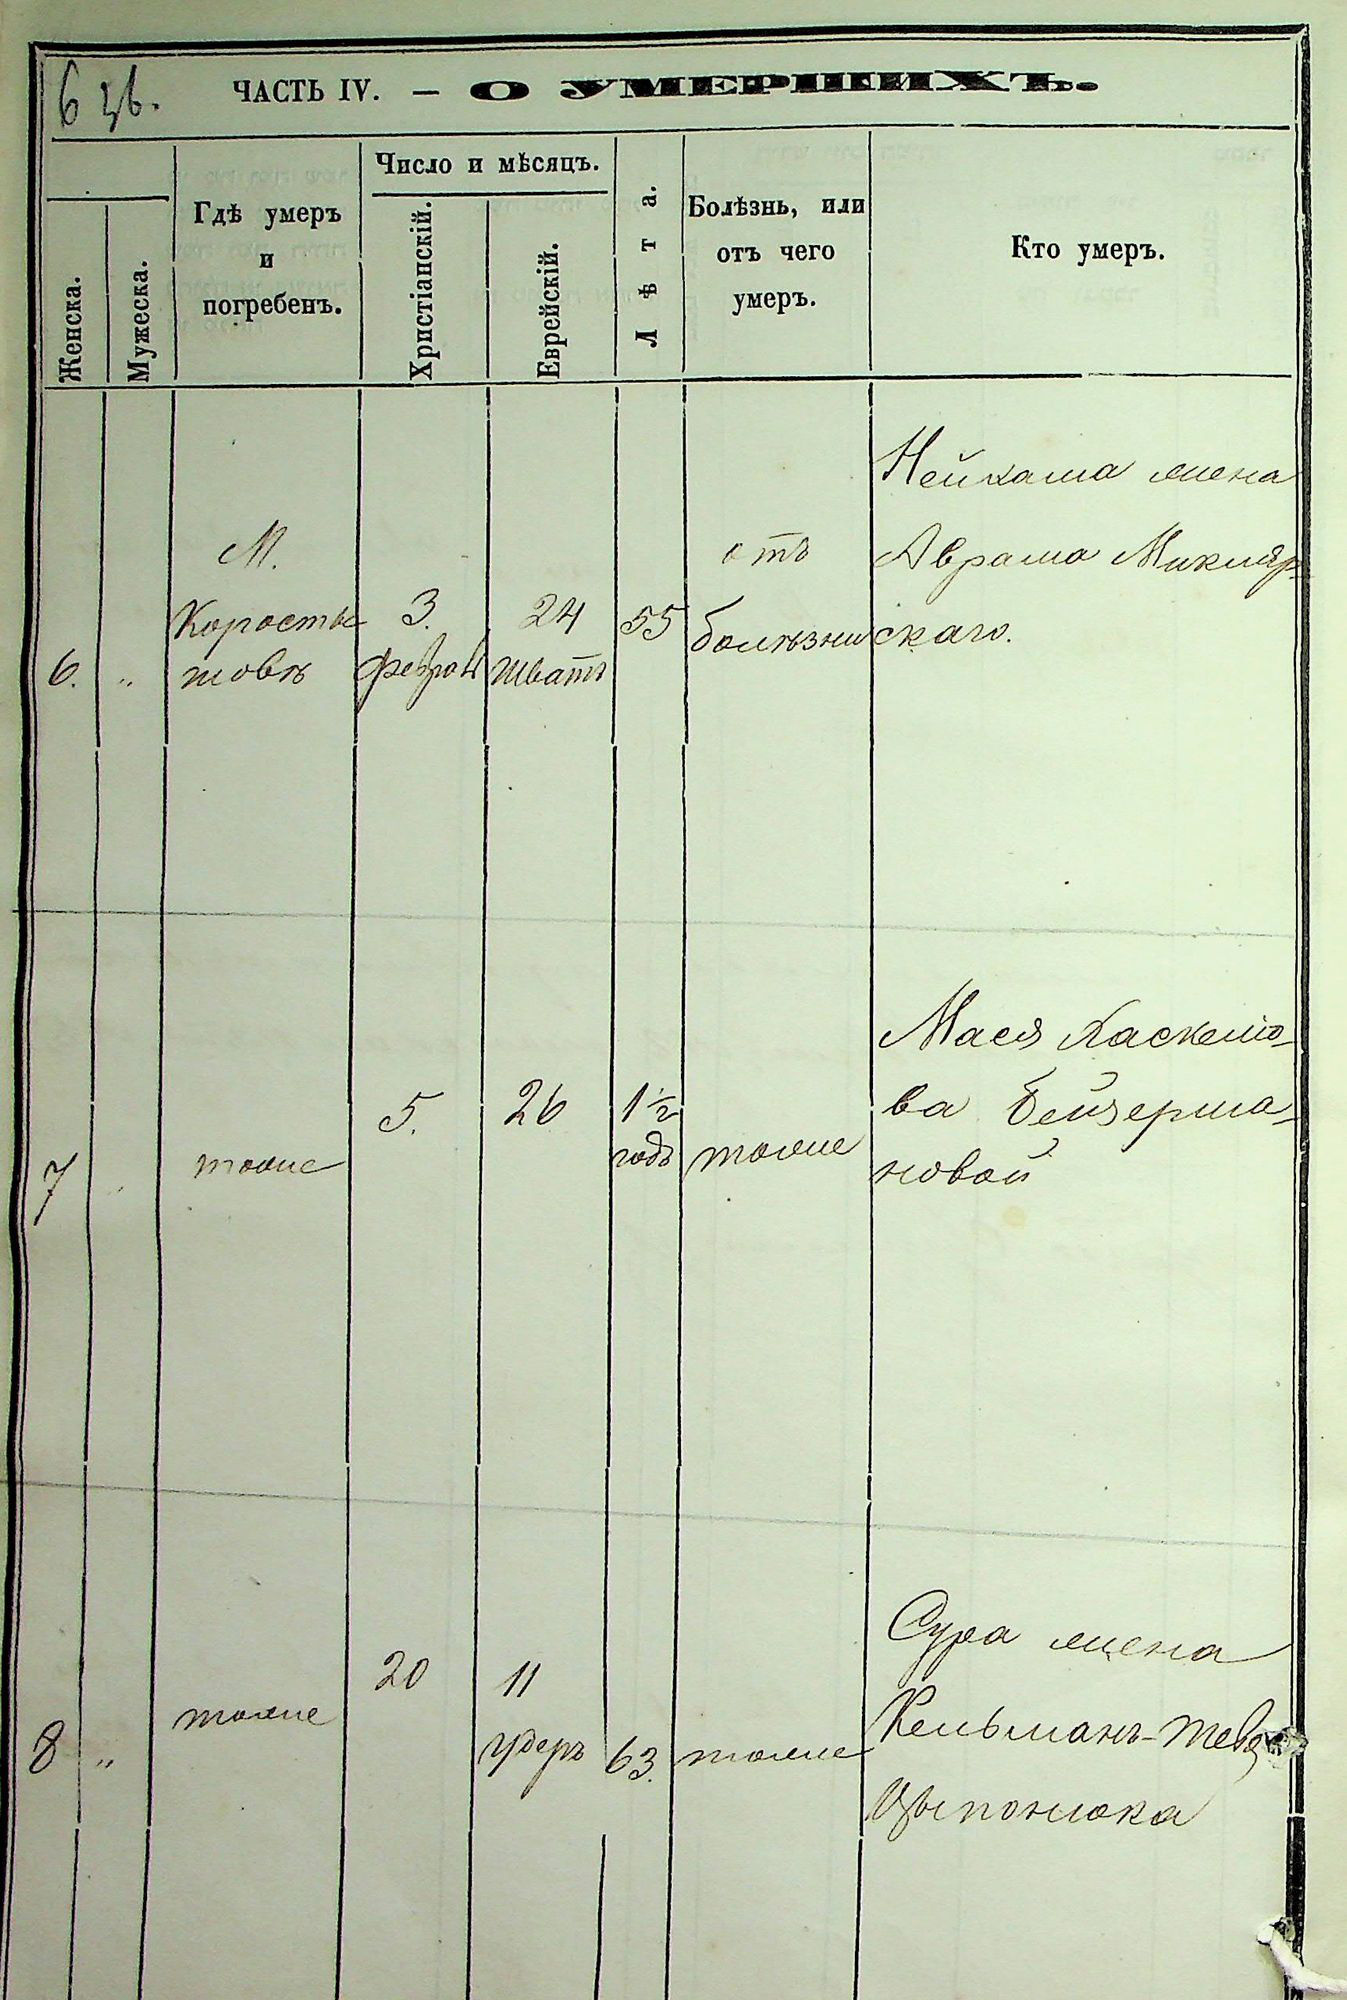 6 зв.
ЧАСТЬ IV. — О УМЕРШИХЪ.
Женска.
Мужеска.
Гдѣ умеръ
и
погребенъ.
Число и мѣсяцъ.
Христіанскій.
Еврейскій.
Лѣта.
Болѣзнь, или
отъ чего
умеръ.
Кто умеръ.
6.
„
М.
Коросты
шовѣ
3.
Феврал
24
Шватъ
55
отъ
болѣзни
Нейхама жена
Аврама Микляр-
скаго.
7
тоже
5.
26
1 1/2
годъ
тоже
Мася Хаскело-
ва Бейзерма-
новой
8
„
тоже
20
11
Удеръ
63.
тоже
Сура жена
Кельманъ-Тевя
Цыпонюка